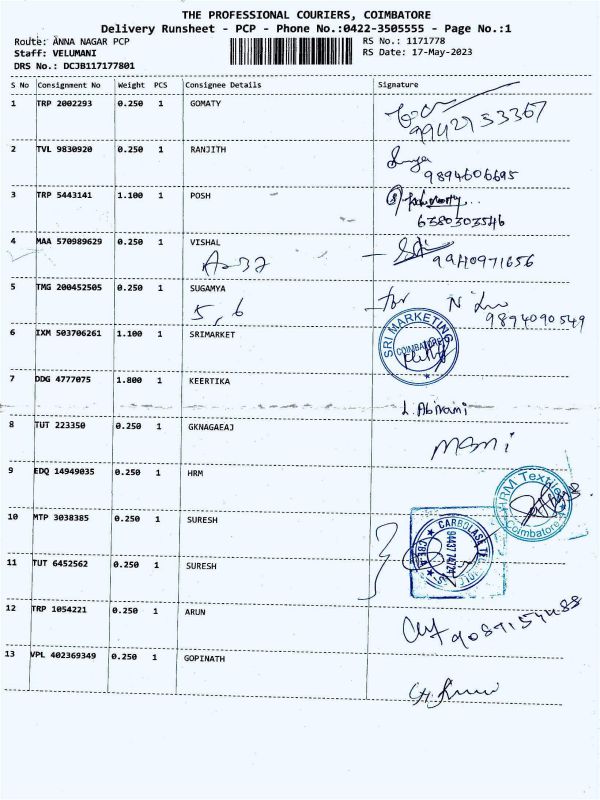 THE PROFESSIONAL COURIERS, COIMBATORE
Delivery Runsheet - PCP - Phone No.:0422-3505555 - Page No.:1
Route: ANNA NAGAR PCP RS No.: 1171778
Staff: VELUMANI RS Date: 17-May-2023
DRS No.: DCJB117177801
S No Consignment No Weight PCS Consignee Details Signature
1 TRP 2002293 0.250 1 GOMATY
9942753367
2 TVL 9830920 0.250 1 RANJITH
9894606695
3 TRP 5443141 1.100 1 POSH
6380303546
4 MAA 570989629 0.250 1 VISHAL
A-37 9940971656
5 TMG 200452505 0.250 1 SUGAMYA
5, 6 for
9894090549
6 IXM 503706261 1.100 1 SRIMARKET SRI MARKETING COIMBATORE
7 DDG 4777075 1.800 1 KEERTIKA
L. Abinami
8 TUT 223350 0.250 1 GKNAGAEAJ
Mani
9 EDQ 14949035 0.250 1 HRM HRM Textile Coimbatore
10 MTP 3038385 0.250 1 SURESH CARBOLASE
11 TUT 6452562 0.250 1 SURESH
12 TRP 1054221 0.250 1 ARUN
13 VPL 402369349 0.250 1 GOPINATH